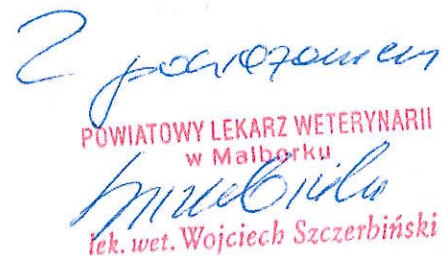 Z poważaniem
POWIATOWY LEKARZ WETERYNARII
w Malborku
lek. wet. Wojciech Szczerbiński